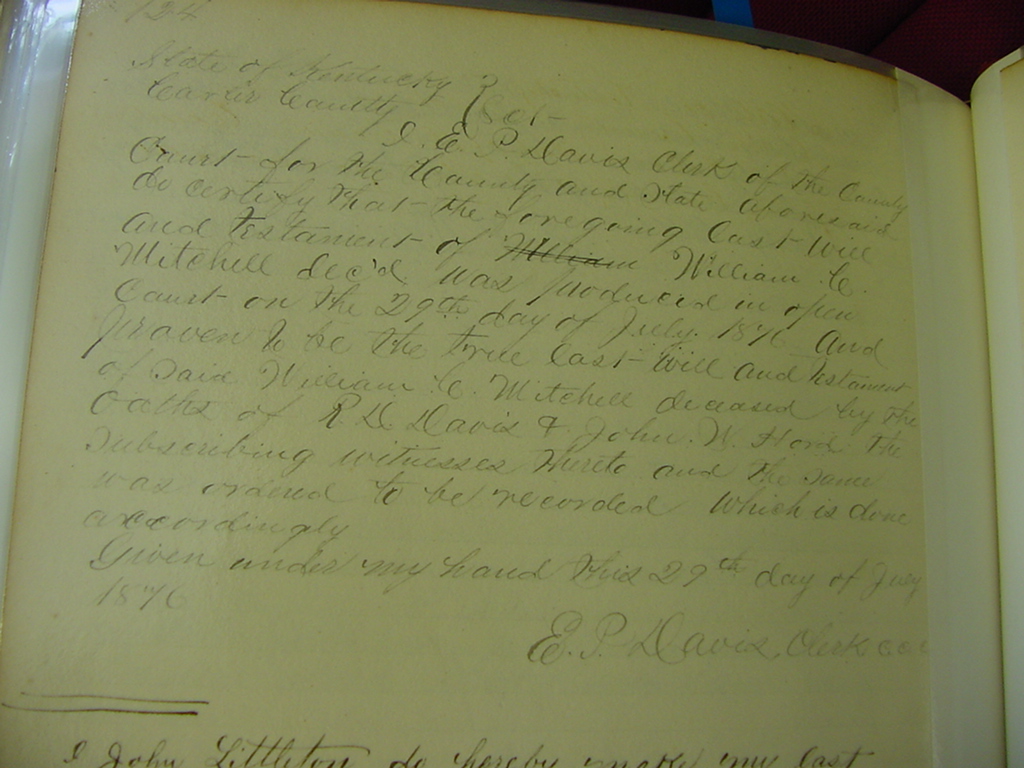 State of Kentucky }
County } Sct-
I E. P. Davis Clerk of the County
Court for the County and State aforesaid
do certify that the foregoing last will
and testament of William C.
Mitchell dec'd was produced in open
Court on the 29th day of July 1876 and
proven to be the true last will and testament
of said William C. Mitchell deceased by the
Oaths of Davis & John. W. the
subscribing witnesses thereto and the same
was ordered to be recorded which is done
accordingly
Given under my hand this 29th day of July
1876
E. P. Davis, Clerk
I John Littleton do hereby make my last